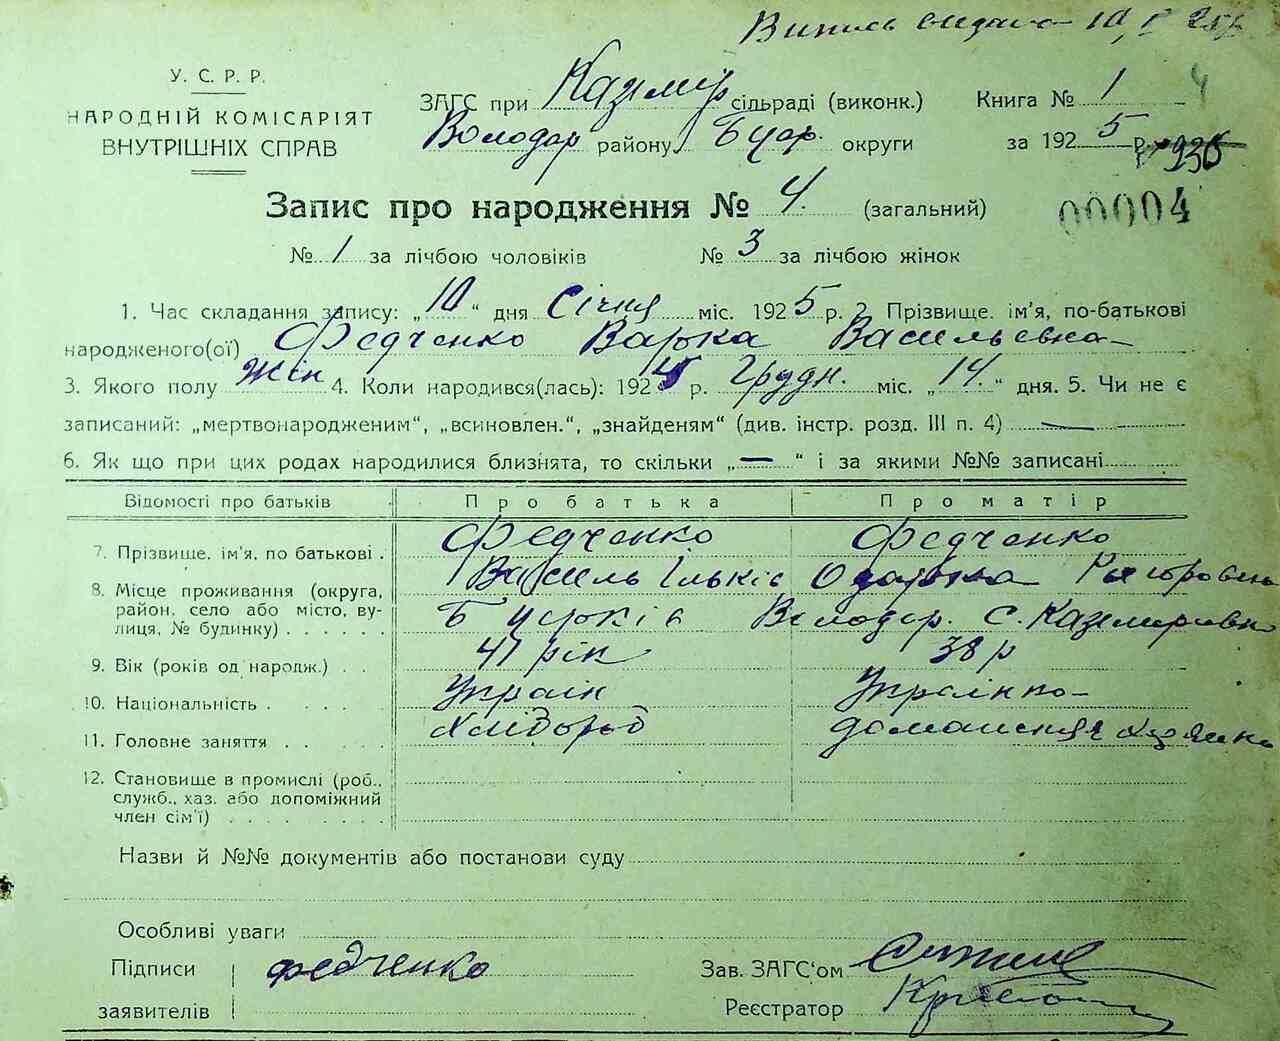 Випись видана 10/I 25р
У. С. Р. Р.
НАРОДНІЙ КОМІСАРІЯТ
ВНУТРІШНІХ СПРАВ
ЗАГС при Казимір сільраді (виконк.) Книга № 1 4
Володар району Бцер. округи за 1925 р.
Запис про народження № 4. (загальний) 00004
№ 1 за лічбою чоловіків № 3 за лічбою жінок
1. Час складання запису: „10“ дня Січня міс. 1925 р. 2. Прізвище. ім'я, по-батькові
народженого(ої) Федченко Варка Васильевна
3. Якого полу Жін 4. Коли народився(лась): 192 р. Грудн. міс. „14.“ дня. 5. Чи не є
записаний: „мертвонародженим“, „всиновлен.“, „знайденям“ (див. інстр. розд. III п. 4) —
6. Як що при цих родах народилися близнята, то скільки „—“ і за якими №№ записані
Відомості про батьків Про батька Про матір
7. Прізвище. ім'я, по батькові . Федченко Федченко
Василь Ільків Одарка
8. Місце проживання (округа,
район, село або місто, ву-
лиця, № будинку) . . . . . . Бцерків Володар. с. Казимировка
9. Вік (років од народж.) . . 47 рік 38 р
10. Національність . . . . . Україн Українка
11. Головне заняття . . . . . Хлібороб домашняя хозяйка
12. Становище в промислі (роб.,
служб., хаз. або допоміжний
член сім'ї) . . . . . . . .
Назви й №№ документів або постанови суду
Особливі уваги
Підписи Федченко Зав. ЗАГС'ом
заявителів Реєстратор